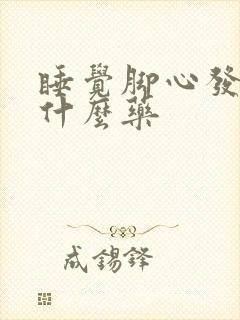 睡覺腳心發
什麼藥
成錫鋒